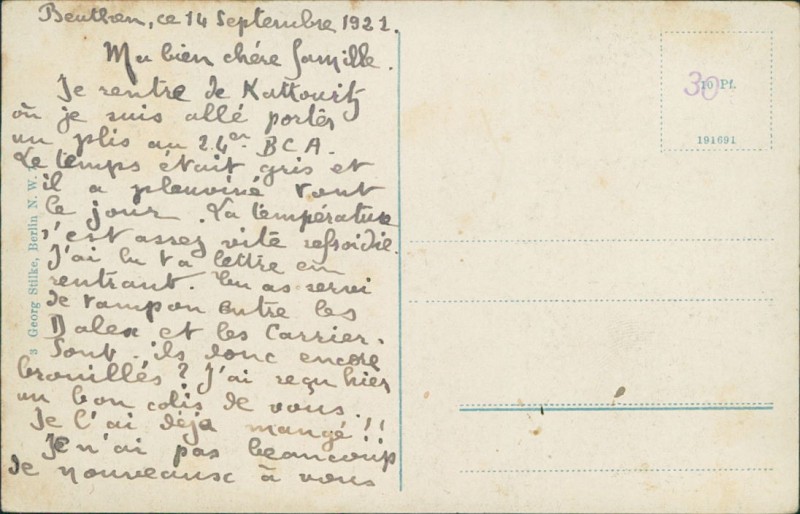 Beuthen, ce 14 Septembre 1921.
Ma bien chère famille.
Je rentre de Kattowitz
où je suis allé porter
un plis au 24er BCA.
Le temps était gris et
il a pleuviné tout
le jour. La température
s'est assez vite refroidie.
J'ai lu ta lettre en
rentrant. Tu as servi
de tampon entre les
Dalex et les Carrier.
Sont-ils donc encore
brouillés? J'ai reçu hier
un bon colis de vous.
Je l'ai déjà mangé!!
Je n'ai pas beaucoup
de nouveause à vous
3 Georg Stilke, Berlin N. W. 7
30
10 Pf.
191691